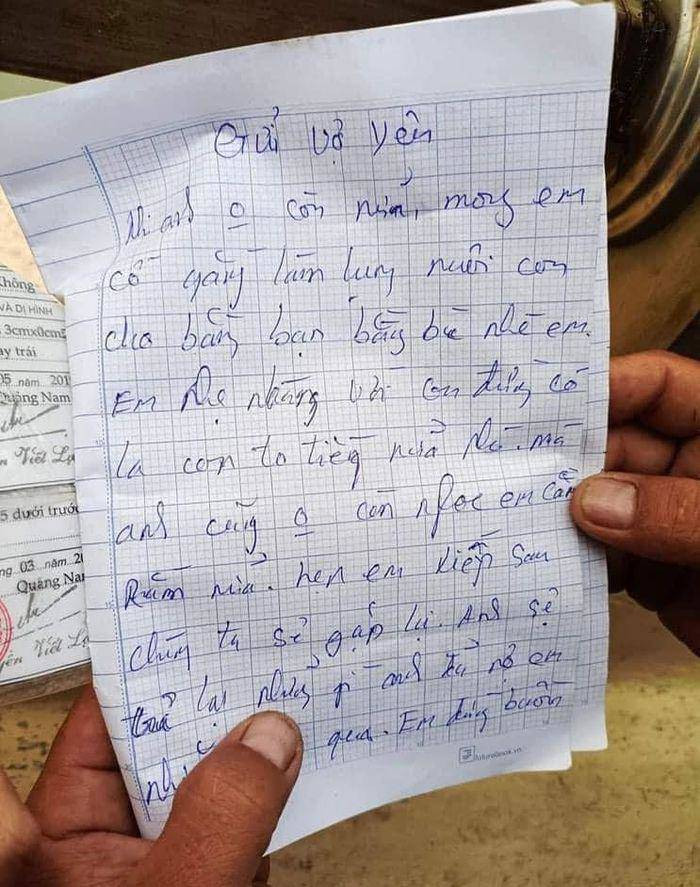 Gửi vợ yên
Khi anh o còn nữa, mong em
cố gắng làm lụng nuôi con
cho bằng bạn bằng bè nhé em.
Em nhẹ nhàng với con đừng có
la con to tiếng nữa nhé. mà
anh cũng o còn ngọc em cằn
Rằn nữa. hẹn em kiếp sau
chúng ta sẽ gặp lại. Anh sẽ
trả lại những gì anh đã nợ em
qua. Em đừng buồn
không
VÀ DỊ HÌNH
3cmx0cm5
ay trái
05 năm 201
Quảng Nam
n Viết L
5 dưới trước
ng 03 năm 2
Quảng Na
yễn Viết L
futurebook.vn